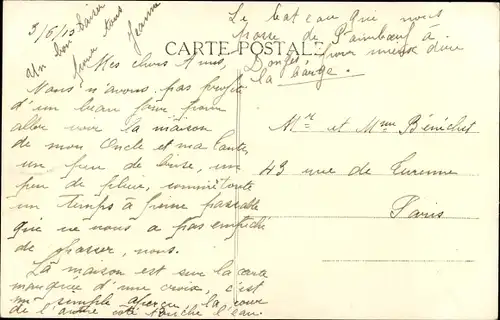 3/6/13
Un bon baiser
pour tous
Jeanne
Le bateau que nous
passe de Paimboeuf à
Donges, pour mieux dire
la barge.
CARTE POSTALE
Mes chers Amis,
Nous n'avons pas profité
d'un beau jour pour
aller voir la maison
de mon Oncle et ma tante,
un peu de brise, un
peu de pluie, somme toute
un temps à peine passable
que ne nous a pas empêché
de passer, nous.
La maison est sur la carte
marquée d'une croix, c'est
simple aperçu, la cour
de l'autre côté touche l'eau.
Mr et Mme Bénéchet
43 rue de Turenne
Paris